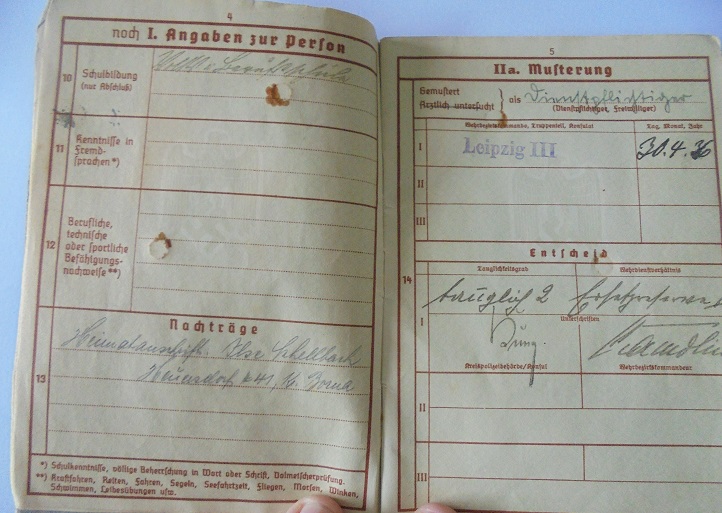 4
noch I. Angaben zur Person
10 Schulbildung
(nur Abschluß)
Volks u. Berufsschule
11 Kenntnisse in
Fremd-
sprachen *)
12 Berufliche,
technische
oder sportliche
Befähigungs-
nachweise **)
Nachträge
13 Heimatanschrift: Ilse Schellbach
Heuersdorf 41,
*) Schulkenntnisse, völlige Beherrschung in Wort oder Schrift, Dolmetscherprüfung.
**) Kraftfahren, Reiten, Fahren, Segeln, Seefahrtzeit, Fliegen, Morsen, Winken,
Schwimmen, Leibesübungen usw.
5
IIa. Musterung
Gemustert
Ärztlich untersucht } als Dienstpflichtiger
(Dienstpflichtiger, Freiwilliger)
Wehrbezirkskommando, Truppenteil, Konsulat
Tag, Monat, Jahr
I Leipzig III 30.4.36
II
III
Entscheid
14
Tauglichkeitsgrad Wehrdienstverhältnis
tauglich 2 Ersatzreserve I
I Unterschriften
Kreispolizeibehörde/Konsul Wehrbezirkskommandeur
II
III